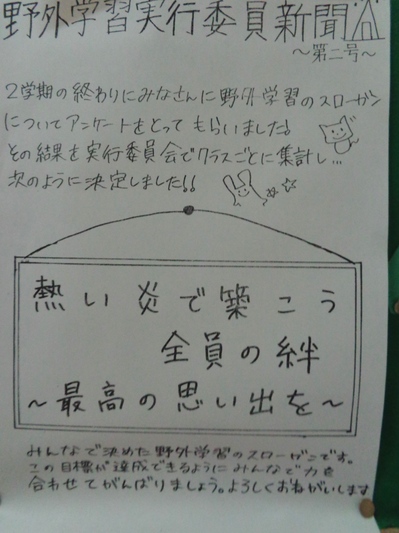 野外学習実行委員新聞
～第二号～
2学期の終わりにみなさんに野外学習のスローガン
についてアンケートをとってもらいました!
その結果を実行委員会でクラスごとに集計し…
次のように決定しました!!
熱い炎で築こう
全員の絆
～最高の思い出を～
みんなで決めた野外学習のスローガンです。
この目標が達成できるようにみんなで力を
合わせてがんばりましょう。よろしくおねがいします